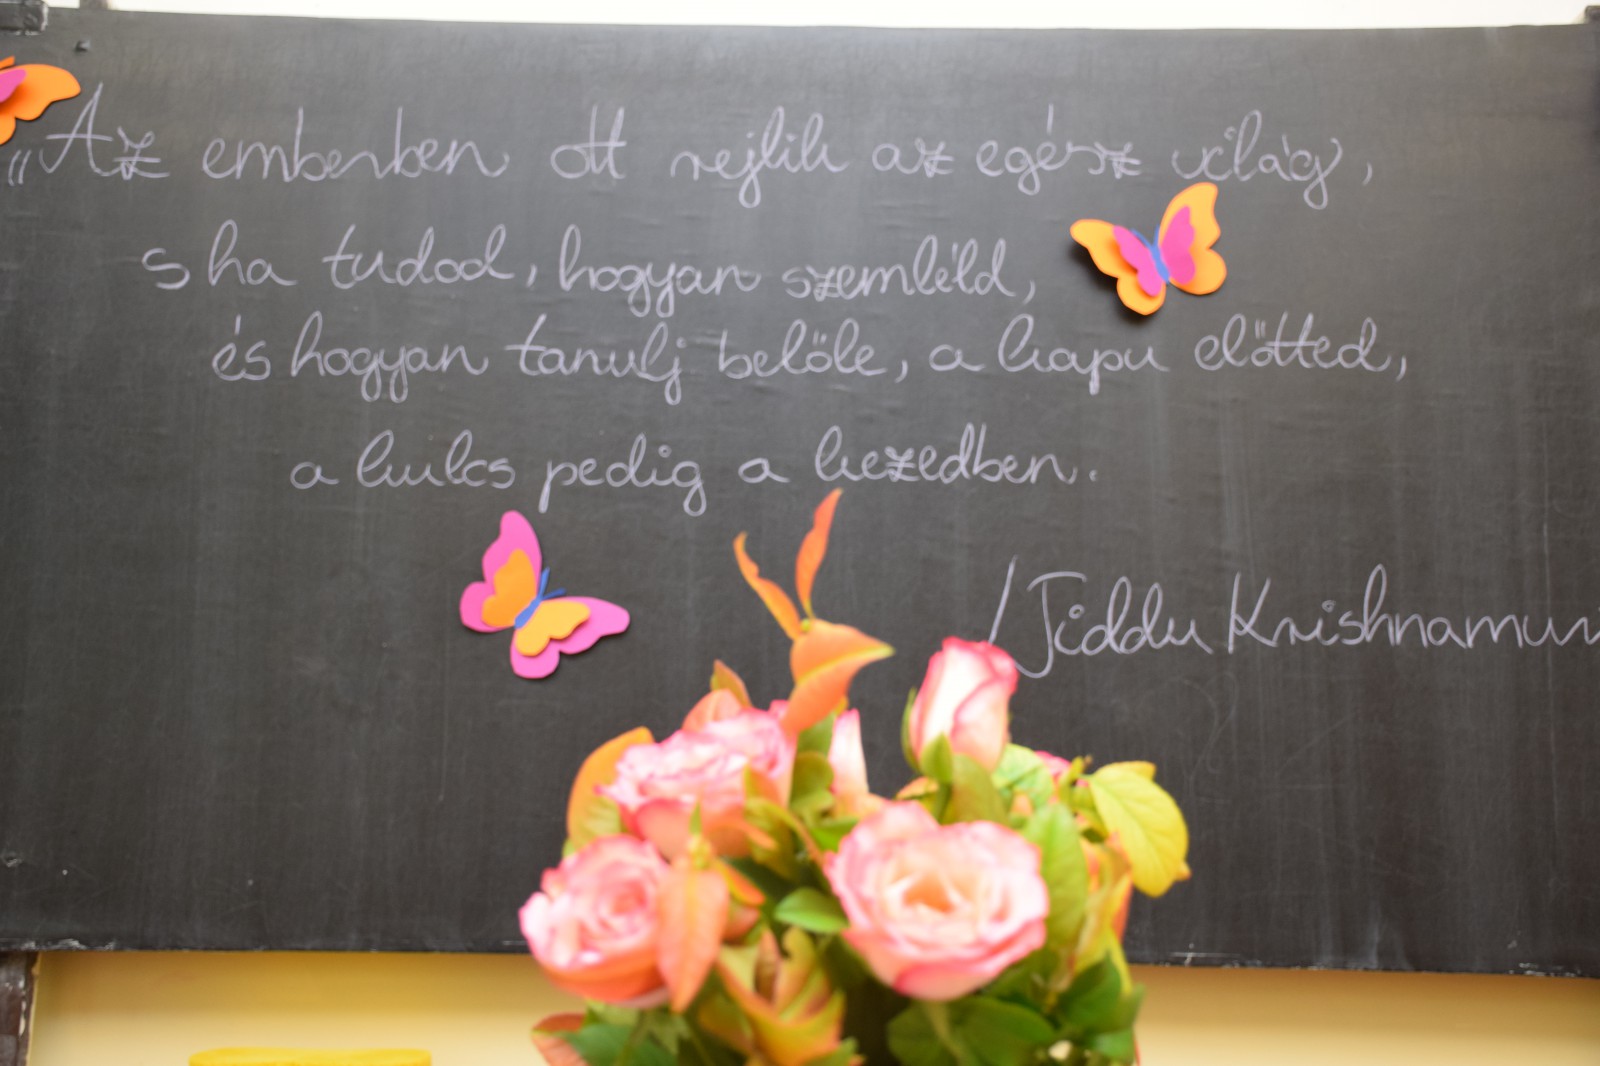 „Az emberben ott rejlik az egész világ,
s ha tudod, hogyan szemléld,
és hogyan tanulj belőle, a kapu előtted,
a kulcs pedig a kezedben.
/Jiddu Krishnamur